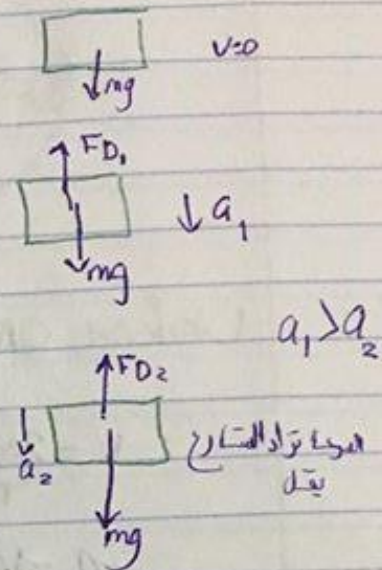 v=0
mg
FD₁
a₁
mg
a₁ > a₂
FD₂
a₂
السرعة تزداد التسارع
يقل
mg